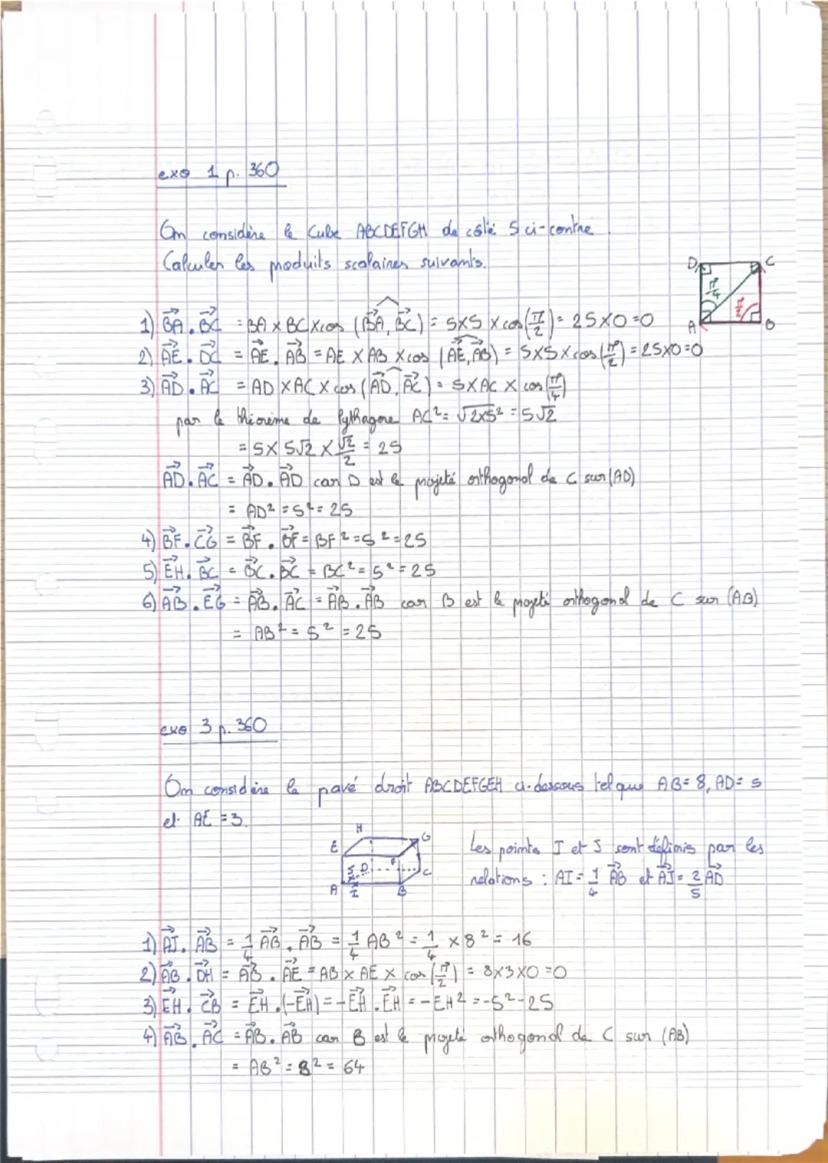 exo 1 p. 360
On considère le cube ABCDEFGH de côté 5 ci-contre.
Calculer les produits scalaires suivants.
D C
π/4
π/2
A B
1) BA⃗ . BC⃗ = BA × BC × cos (BA⃗, BC⃗) = 5×5 × cos(π/2) = 25×0 = 0
2) AE⃗ . DC⃗ = AE⃗ . AB⃗ = AE × AB × cos (AE⃗, AB⃗) = 5×5× cos(π/2) = 25×0=0
3) AD⃗ . AC⃗ = AD × AC × cos (AD⃗, AC⃗) = 5×AC × cos(π/4)
par le théorème de Pythagore AC² = √2×5² = 5√2
= 5× 5√2 × √2/2 = 25
AD⃗ . AC⃗ = AD⃗ . AD⃗ car D est le projeté orthogonal de C sur (AD)
= AD² = 5² = 25
4) BF⃗ . CG⃗ = BF⃗ . BF⃗ = BF² = 5² = 25
5) EH⃗ . BC⃗ = BC⃗ . BC⃗ = BC² = 5² = 25
6) AB⃗ . EG⃗ = AB⃗ . AC⃗ = AB⃗ . AB⃗ car B est le projeté orthogonal de C sur (AB)
= AB² = 5² = 25
exo 3 p. 360
On considère le pavé droit ABCDEFGEH ci-dessous tel que AB = 8, AD = 5
et AE = 3.
H G
E F
J D C
A I B
Les points I et J sont définis par les
relations : AI = 1/4 AB⃗ et AJ⃗ = 2/5 AD⃗
1) AI⃗ . AB⃗ = 1/4 AB⃗ . AB⃗ = 1/4 AB² = 1/4 × 8² = 16
2) AB⃗ . DH⃗ = AB⃗ . AE⃗ = AB × AE × cos (π/2) = 8×3×0 = 0
3) EH⃗ . CB⃗ = EH⃗ . (-EH⃗) = -EH⃗ . EH⃗ = -EH² = -5² -25
4) AB⃗ . AC⃗ = AB⃗ . AB⃗ car B est le projeté orthogonal de C sur (AB)
= AB² = 8² = 64